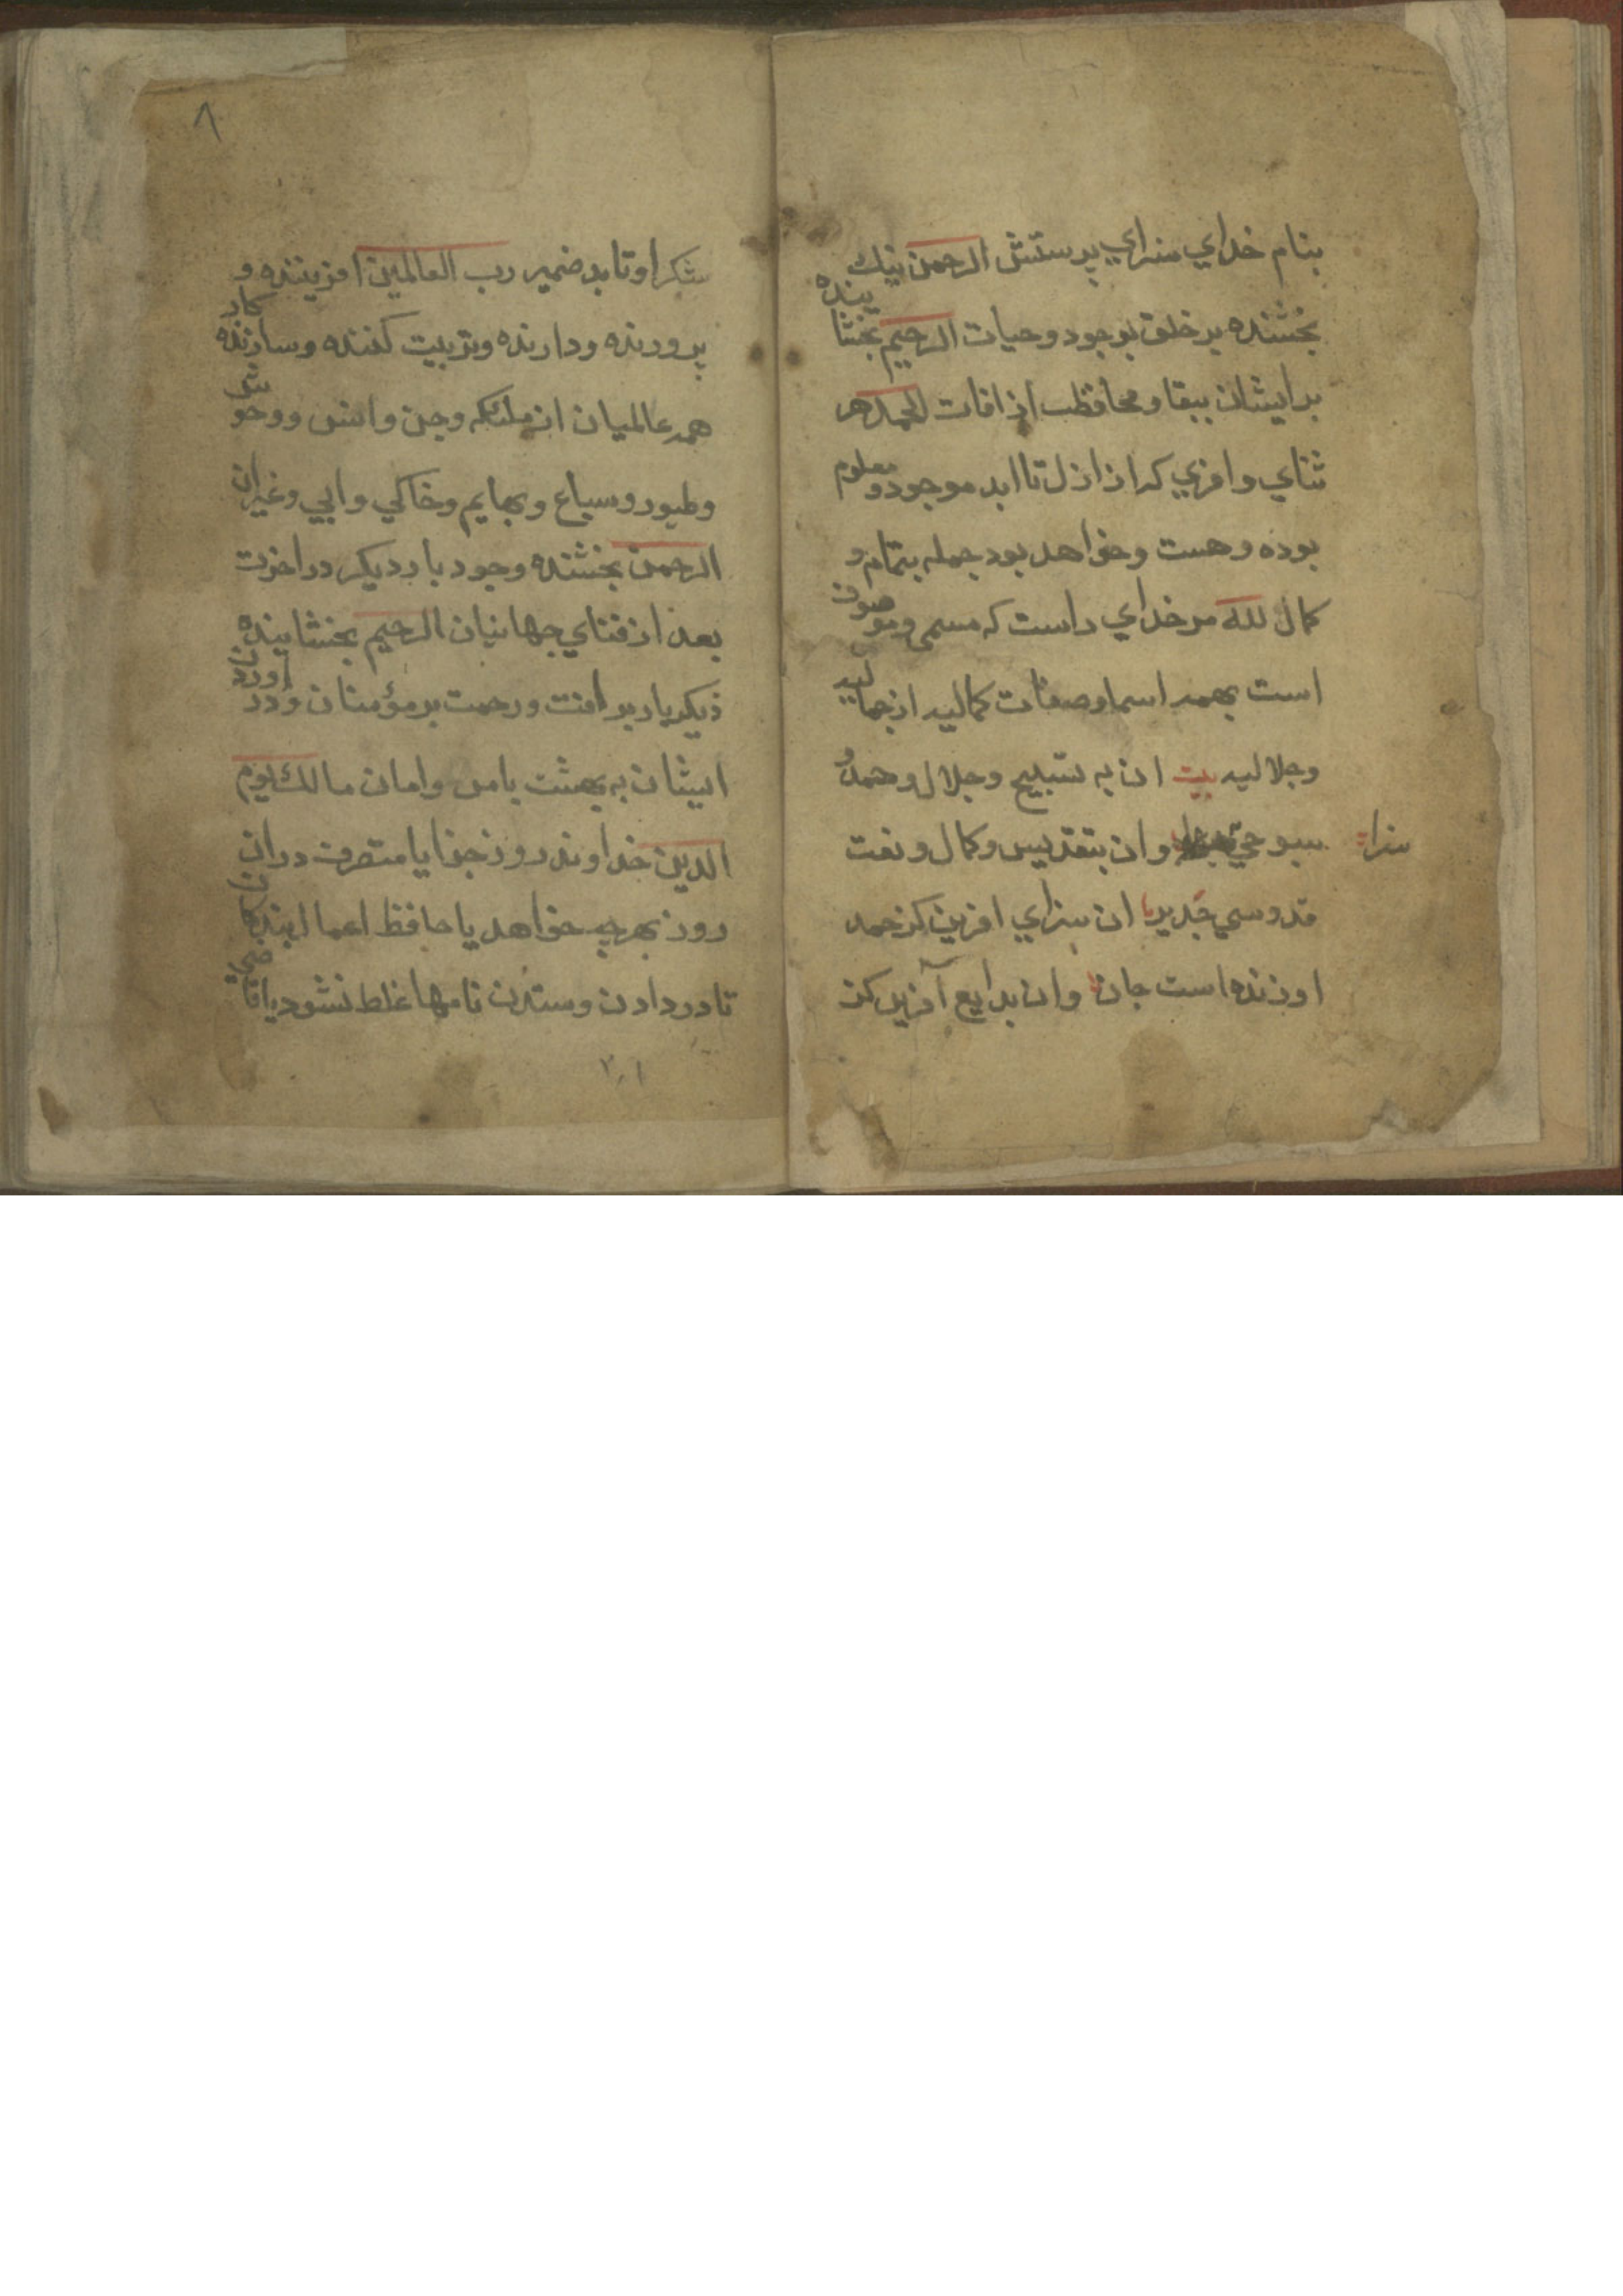 بنام خداي سزاي پرستش الرحمن نيك
بخشنده بر خلق بوجود وحيات الرحيم بخشا
ينده
بر ايشان ببقا ومحافظت از افات الحمد هر
ثناي وافريي كه از ازل تا ابد موجود و معلوم
بوده وهست وخواهد بود جمله بتمام و
كمال لله مر خداي راست كه مسمي وموصوف
است بهمه اسما وصفات كماليه از جماليه
وجلاليه بيت ان به تسبيح وجلال وحمد و
سزا
سبوحي وان بتقديس وكمال ونعت
قدوسي جدير ان سزاي افرين كز حمد
اوزنده است جان وان بدايع آفرين كز
٨
شكر او تابد ضمير رب العالمين افريننده و
پرورنده ودارنده وتربيت كننده وسازنده
كار
همه عالميان از ملئكه وجن وانس ووحو
ش
وطيور وسباع وبهايم وخاكي وابي وغيران
الرحمن بخشنده وجود بار ديكر در اخرت
بعد از فناي جهانيان الرحيم بخشاينده
ديكر بار برافت ورحمت بر مؤمنان ودر
اوردن
ايشان به بهشت بامن وامان مالك يوم
الدين خداوند روز جزا يا متصرف دران
روز بهرچه خواهد يا حافظ اعمال بندها
ن
تا در دادن وستدن نامها غلط نشود يا قا
ضي
٢٠١